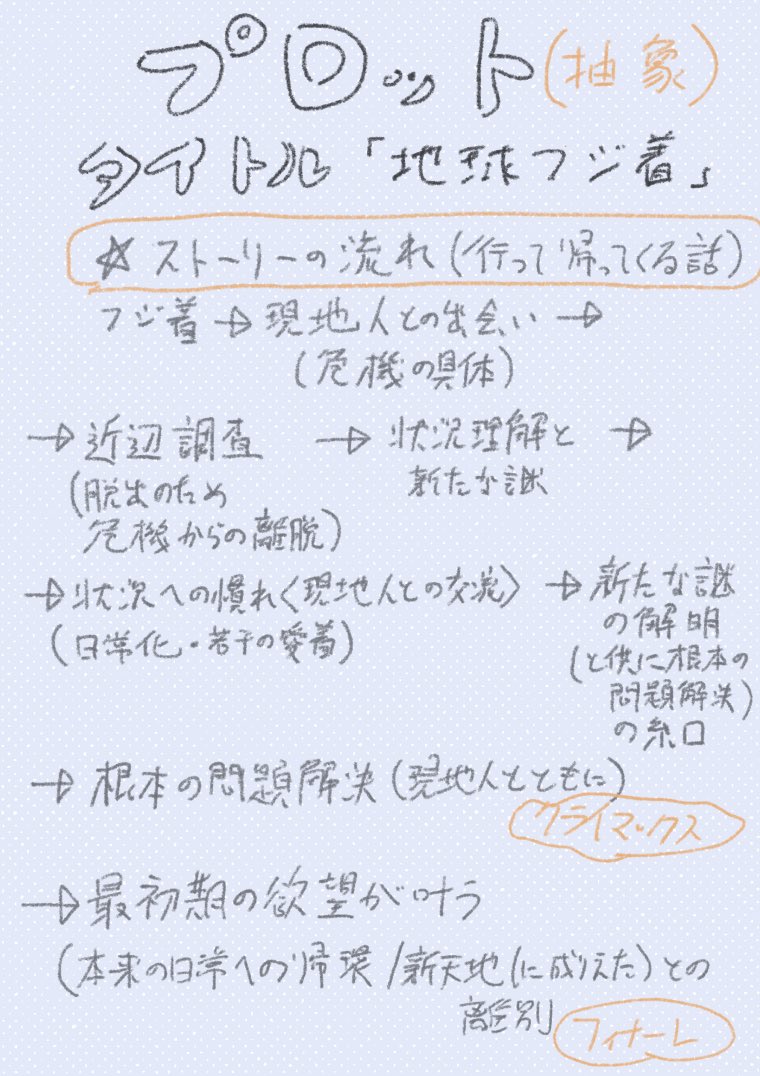 プロット(抽象)
タイトル「地球フジ着」
☆ストーリーの流れ(行って帰ってくる話)
フジ着→現地人との出会い→
(危機の具体)
→近辺調査 →状況理解と →
(脱出のため 新たな謎
危機からの離脱)
→状況への慣れ〈現地人との交流〉 →新たな謎
(日常化・若干の愛着) の解明
(と供に根本の
問題解決)
の糸口
→根本の問題解決(現地人とともに)
クライマックス
→最初期の欲望が叶う
(本来の日常への帰環/新天地(に成りえた)との
離別
フィナーレ